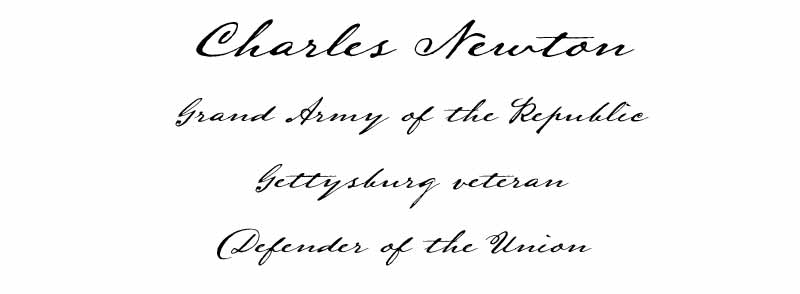 Charles Newton
Grand Army of the Republic
Gettysburg veteran
Defender of the Union